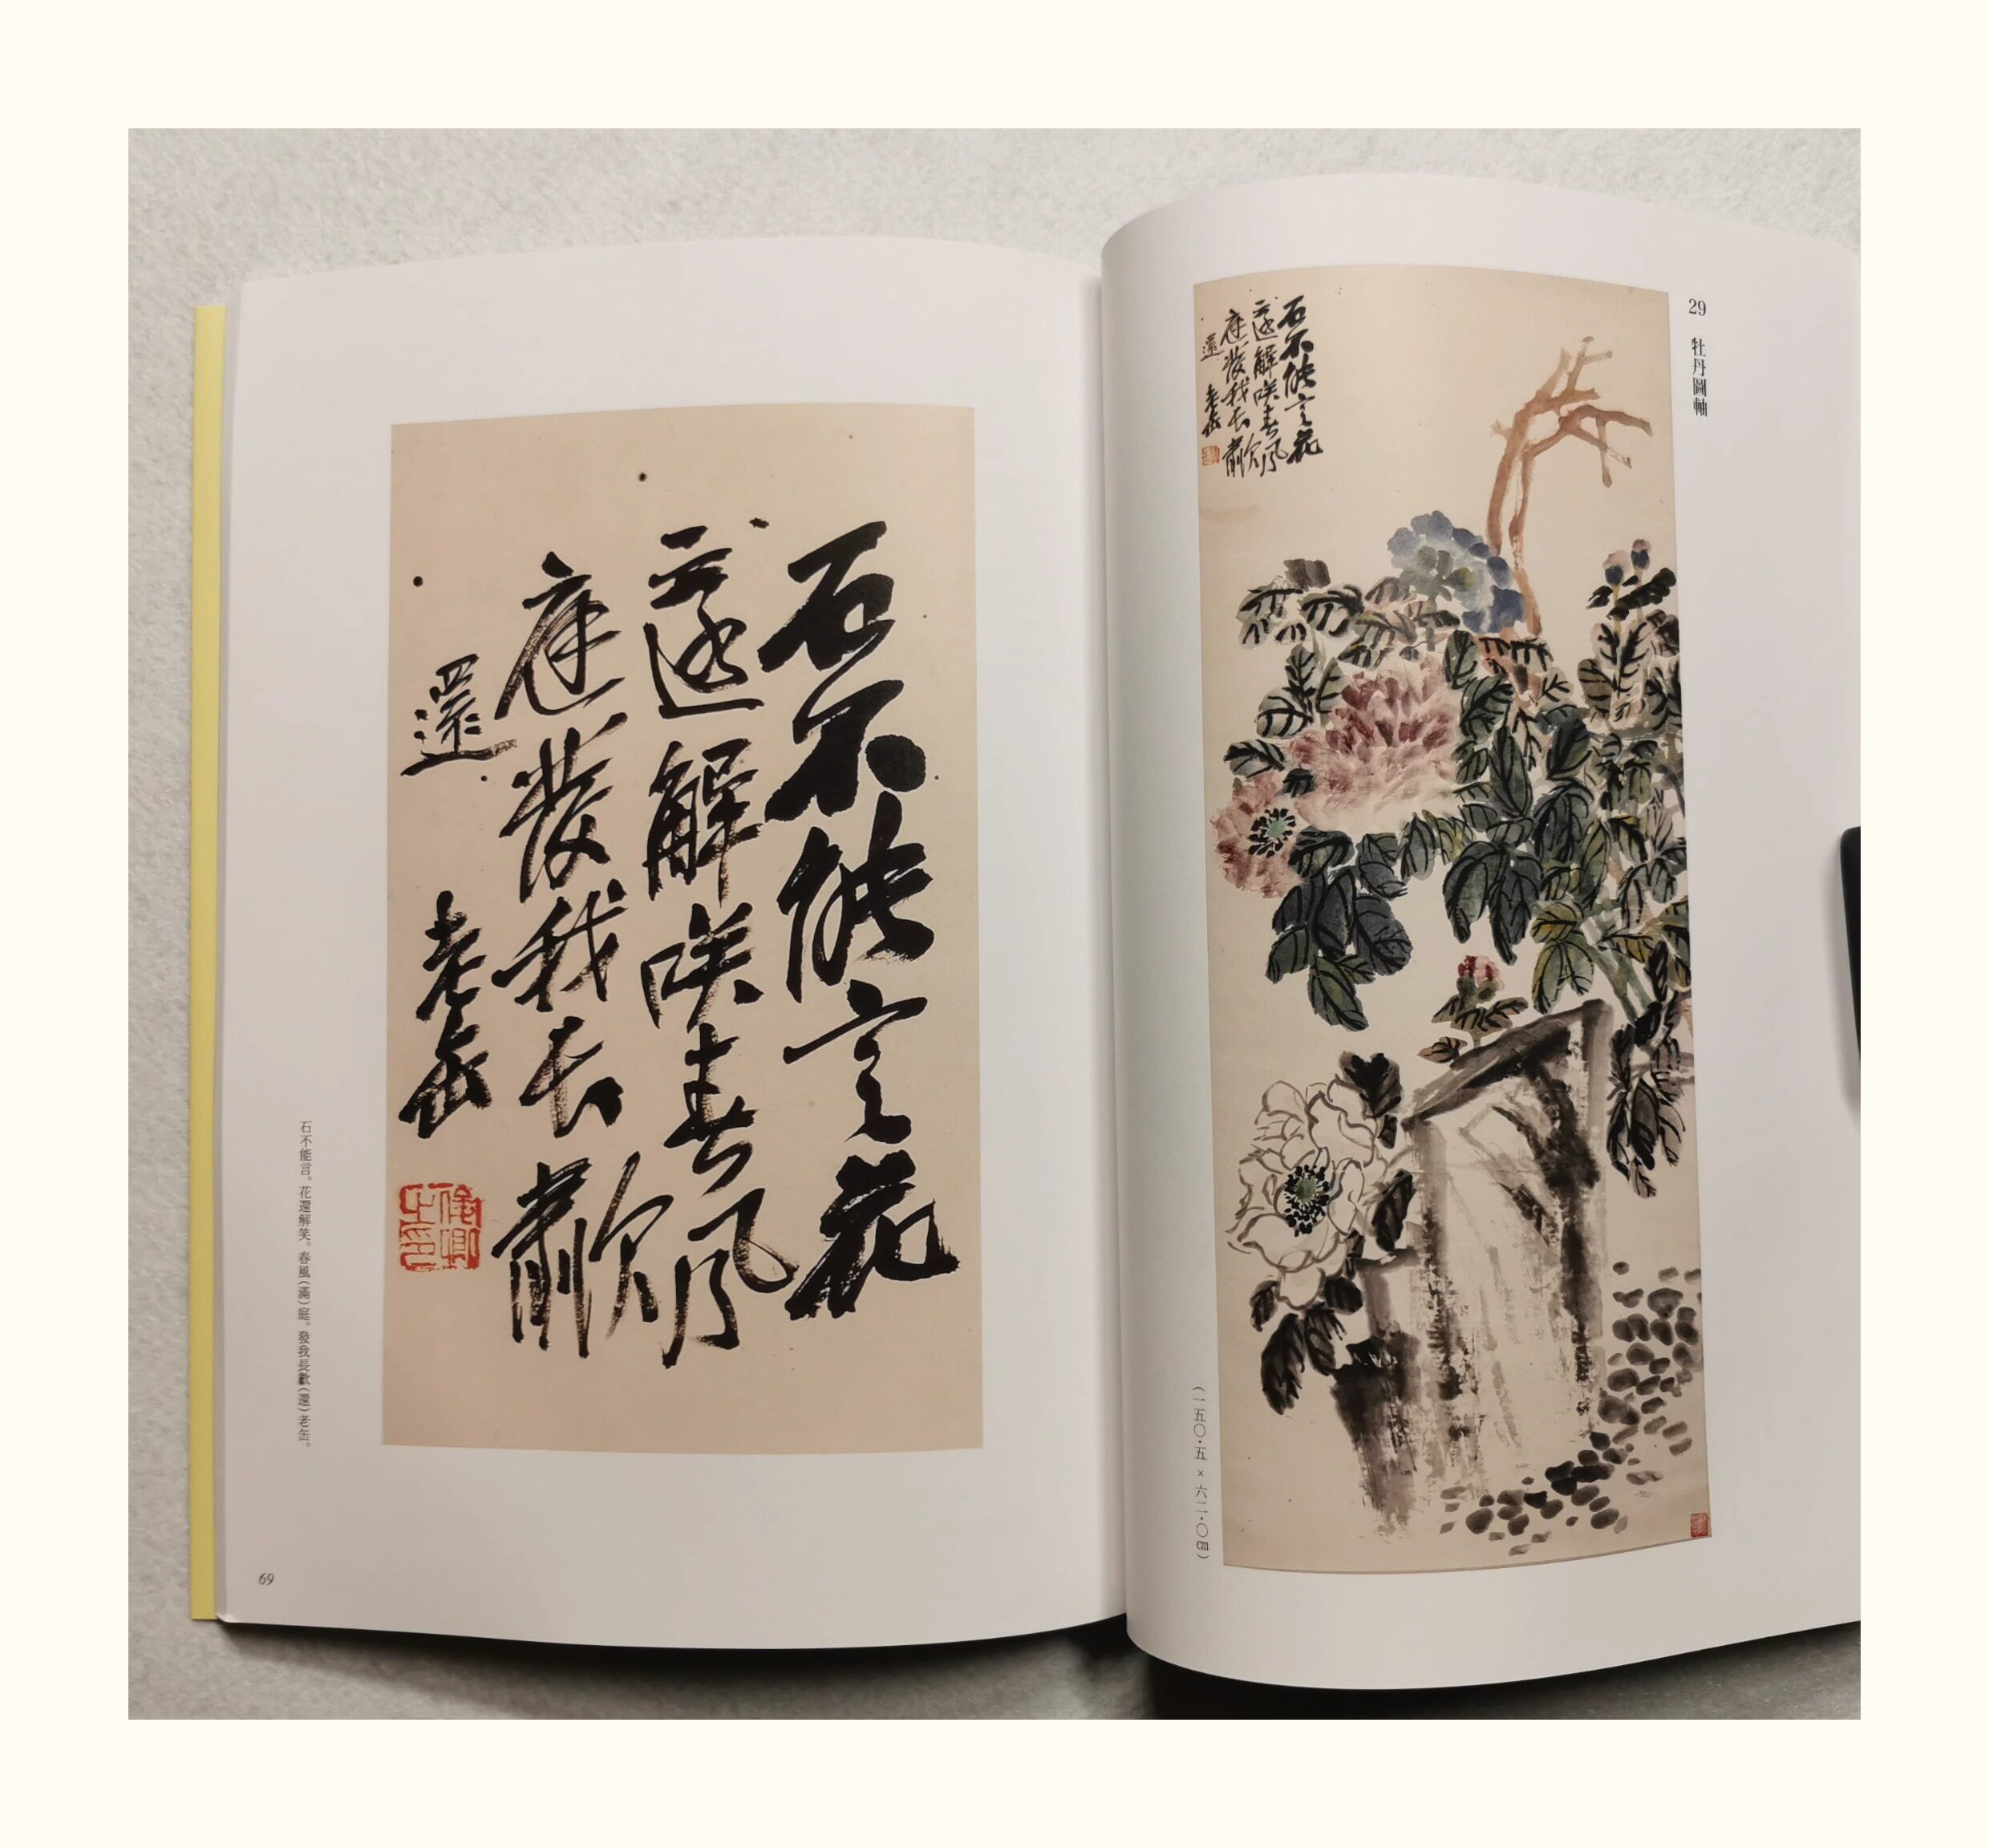 29 牡丹圖軸
石不能言花
還解咲春風
庭發我長歗
還 老缶
(一五〇·五×六二·〇㎝)
石不能言花
還解咲春風
庭發我長歗
還 老缶
俊卿之印
石不能言。花還解笑。春風(滿)庭。發我長歗(還)老缶。
69